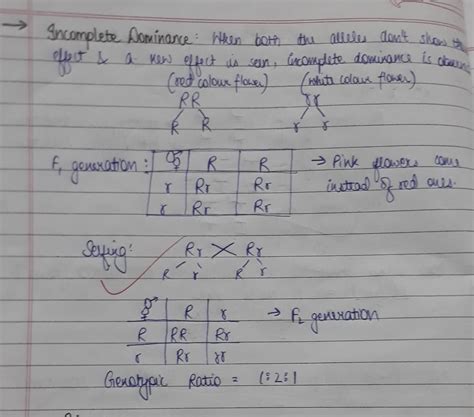 → Incomplete Dominance: When both the alleles don't show the
effect & a new effect is seen, incomplete dominance is
(red colour flower) (white colour flower)
RR rr
R R r r
F₁ generation: ⚥ R R → Pink flowers come
r Rr Rr instead of red ones.
r Rr Rr
Selfing: Rr × Rr
R r R r
⚥ R r → F₂ generation
R RR Rr
r Rr rr
Genotypic Ratio = 1:2:1